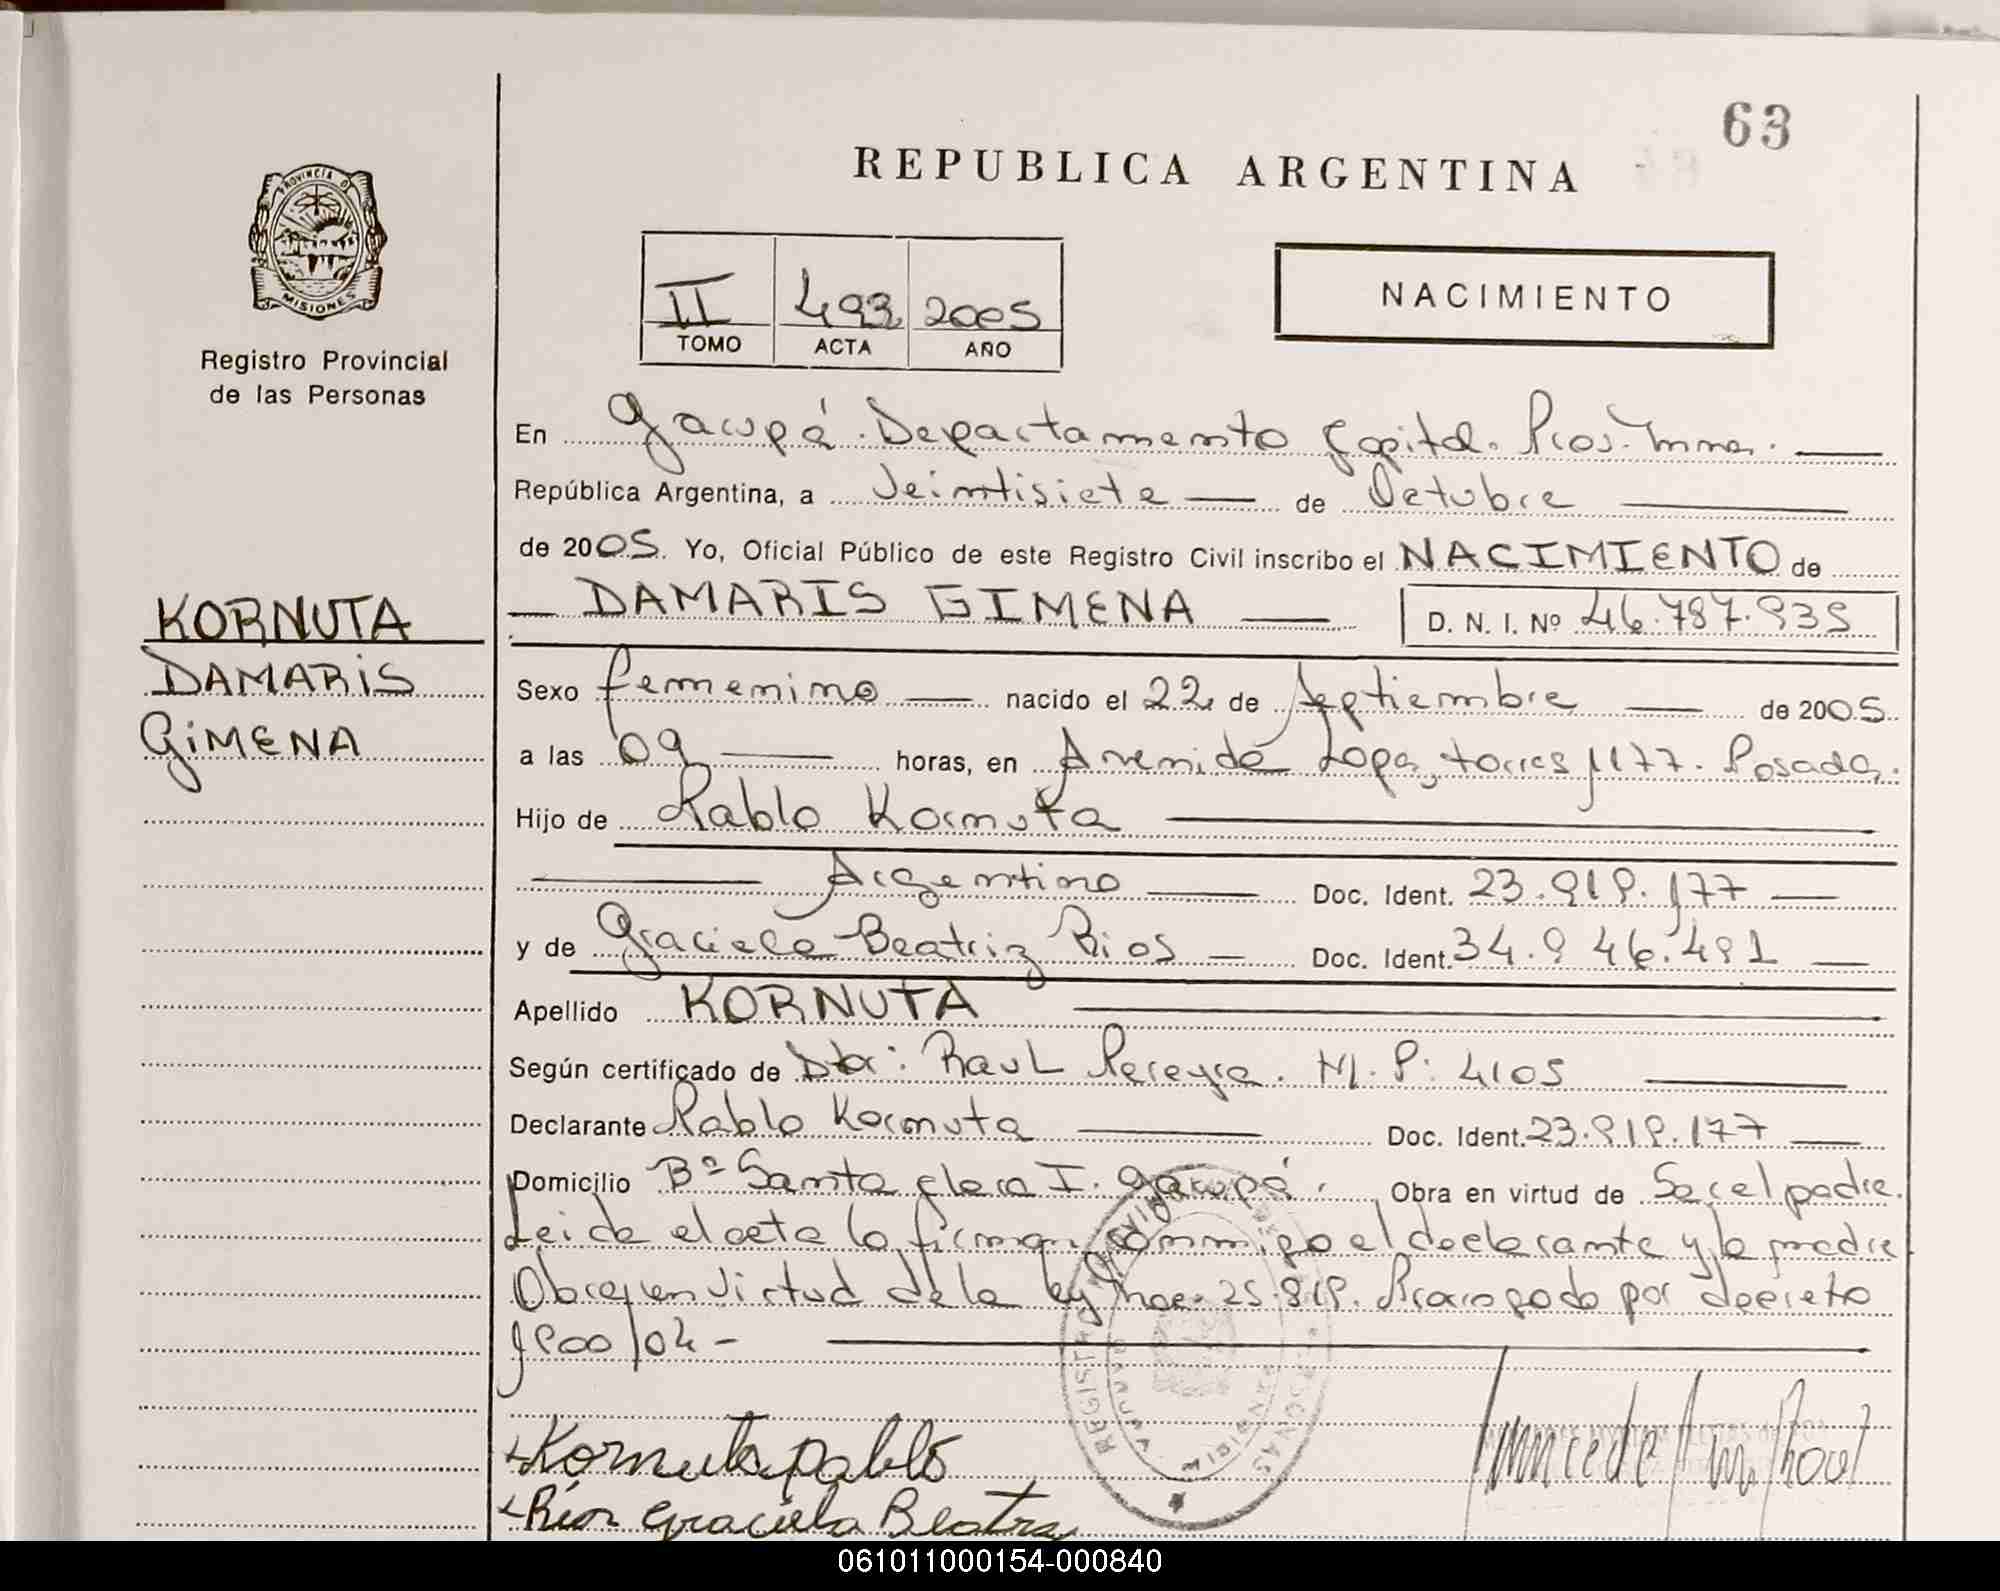 63
REPUBLICA ARGENTINA
PROVINCIA DE
MISIONES
Registro Provincial
de las Personas
II 493 2005
TOMO ACTA AÑO
NACIMIENTO
En Garupá. Departamento Capital. Prov.
República Argentina, a Veintisiete de Octubre
de 2005. Yo, Oficial Público de este Registro Civil inscribo el NACIMIENTO de
DAMARIS GIMENA D. N. I. Nº 46.787.935
KORNUTA
DAMARIS
GIMENA
Sexo femenino nacido el 22 de Septiembre de 2005
a las 09 horas, en Avenida Lopez torres 1177. Posadas.
Hijo de Pablo Kornuta
Argentino Doc. Ident. 23.919.177
y de Graciela Beatriz Rios Doc. Ident. 34.946.491
Apellido KORNUTA
Según certificado de Raul Pereyra. M.P: 4105
Declarante Pablo Kornuta Doc. Ident. 23.919.177
Domicilio Bº Santa Clara I. Garupá. Obra en virtud de Ser el padre.
Leida el acta la firman conmigo el declarante y la madre
Obra en virtud de la ley 25.819. Prorrogado por decreto
1900/04-
Kornuta pablo
Rios Graciela Beatriz
061011000154-000840